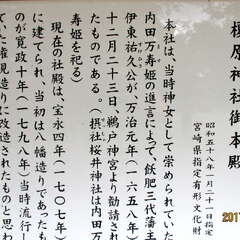 榎原神社御本殿
昭和五十八年一月二十一日指定
宮崎県指定有形文化財
本社は、当時神女として崇められていた
内田万寿姫の進言によって、飫肥三代藩主
伊東祐久公が、万治元年（一六五八年）
十二月二十三日、鵜戸神宮より勧請され
たものである。（摂社桜井神社は内田万
寿姫を祀る）
現在の社殿は、宝永四年（一七〇七年）
に建てられ、当初は八幡造りであったも
のが寛政十年（一七九八年）当時流行し
ていた権現造りに改造されたものと思わ
201